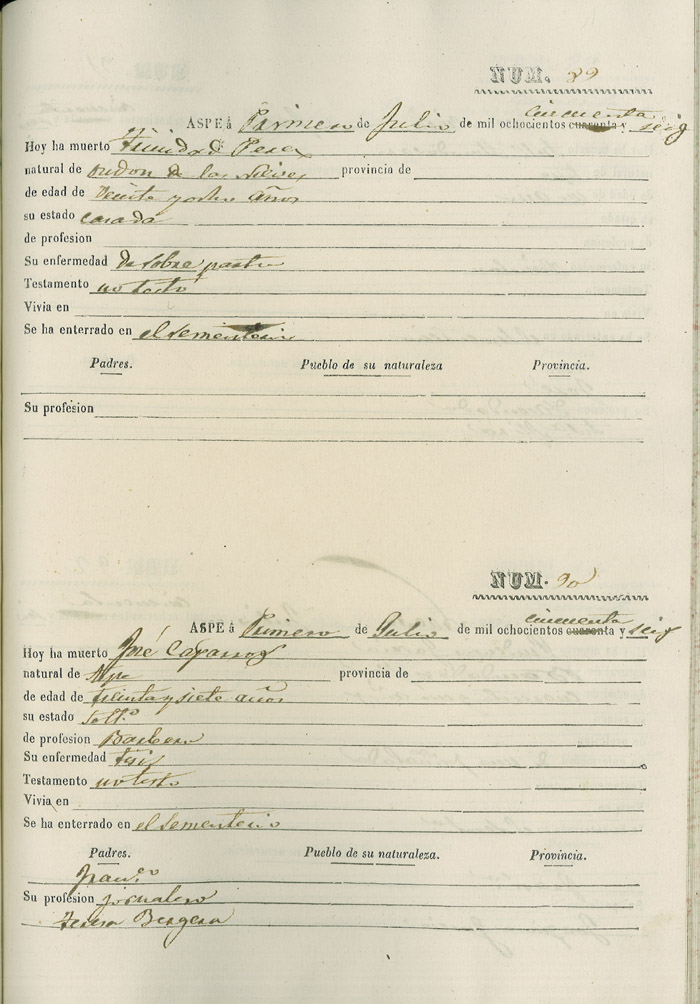 NUM. 89
cincuenta
ASPE á Primero de Julio de mil ochocientos cuarenta y seis
Hoy ha muerto Trinidad Perez
natural de ondon de las Nieves provincia de
de edad de Veinte y ocho años
su estado casada
de profesion
Su enfermedad de sobre parto
Testamento no testó
Vivia en
Se ha enterrado en el sementerio
Padres. Pueblo de su naturaleza Provincia.
Su profesion
NUM. 90
cincuenta
ASPE á Primero de Julio de mil ochocientos cuarenta y seis
Hoy ha muerto José
natural de Aspe provincia de
de edad de treinta y siete años
su estado Solt.º
de profesion Barbero
Su enfermedad tisis
Testamento no testo
Vivia en
Se ha enterrado en el sementerio
Padres. Pueblo de su naturaleza. Provincia.
Fran.co
Su profesion jornalero
teresa Bergera